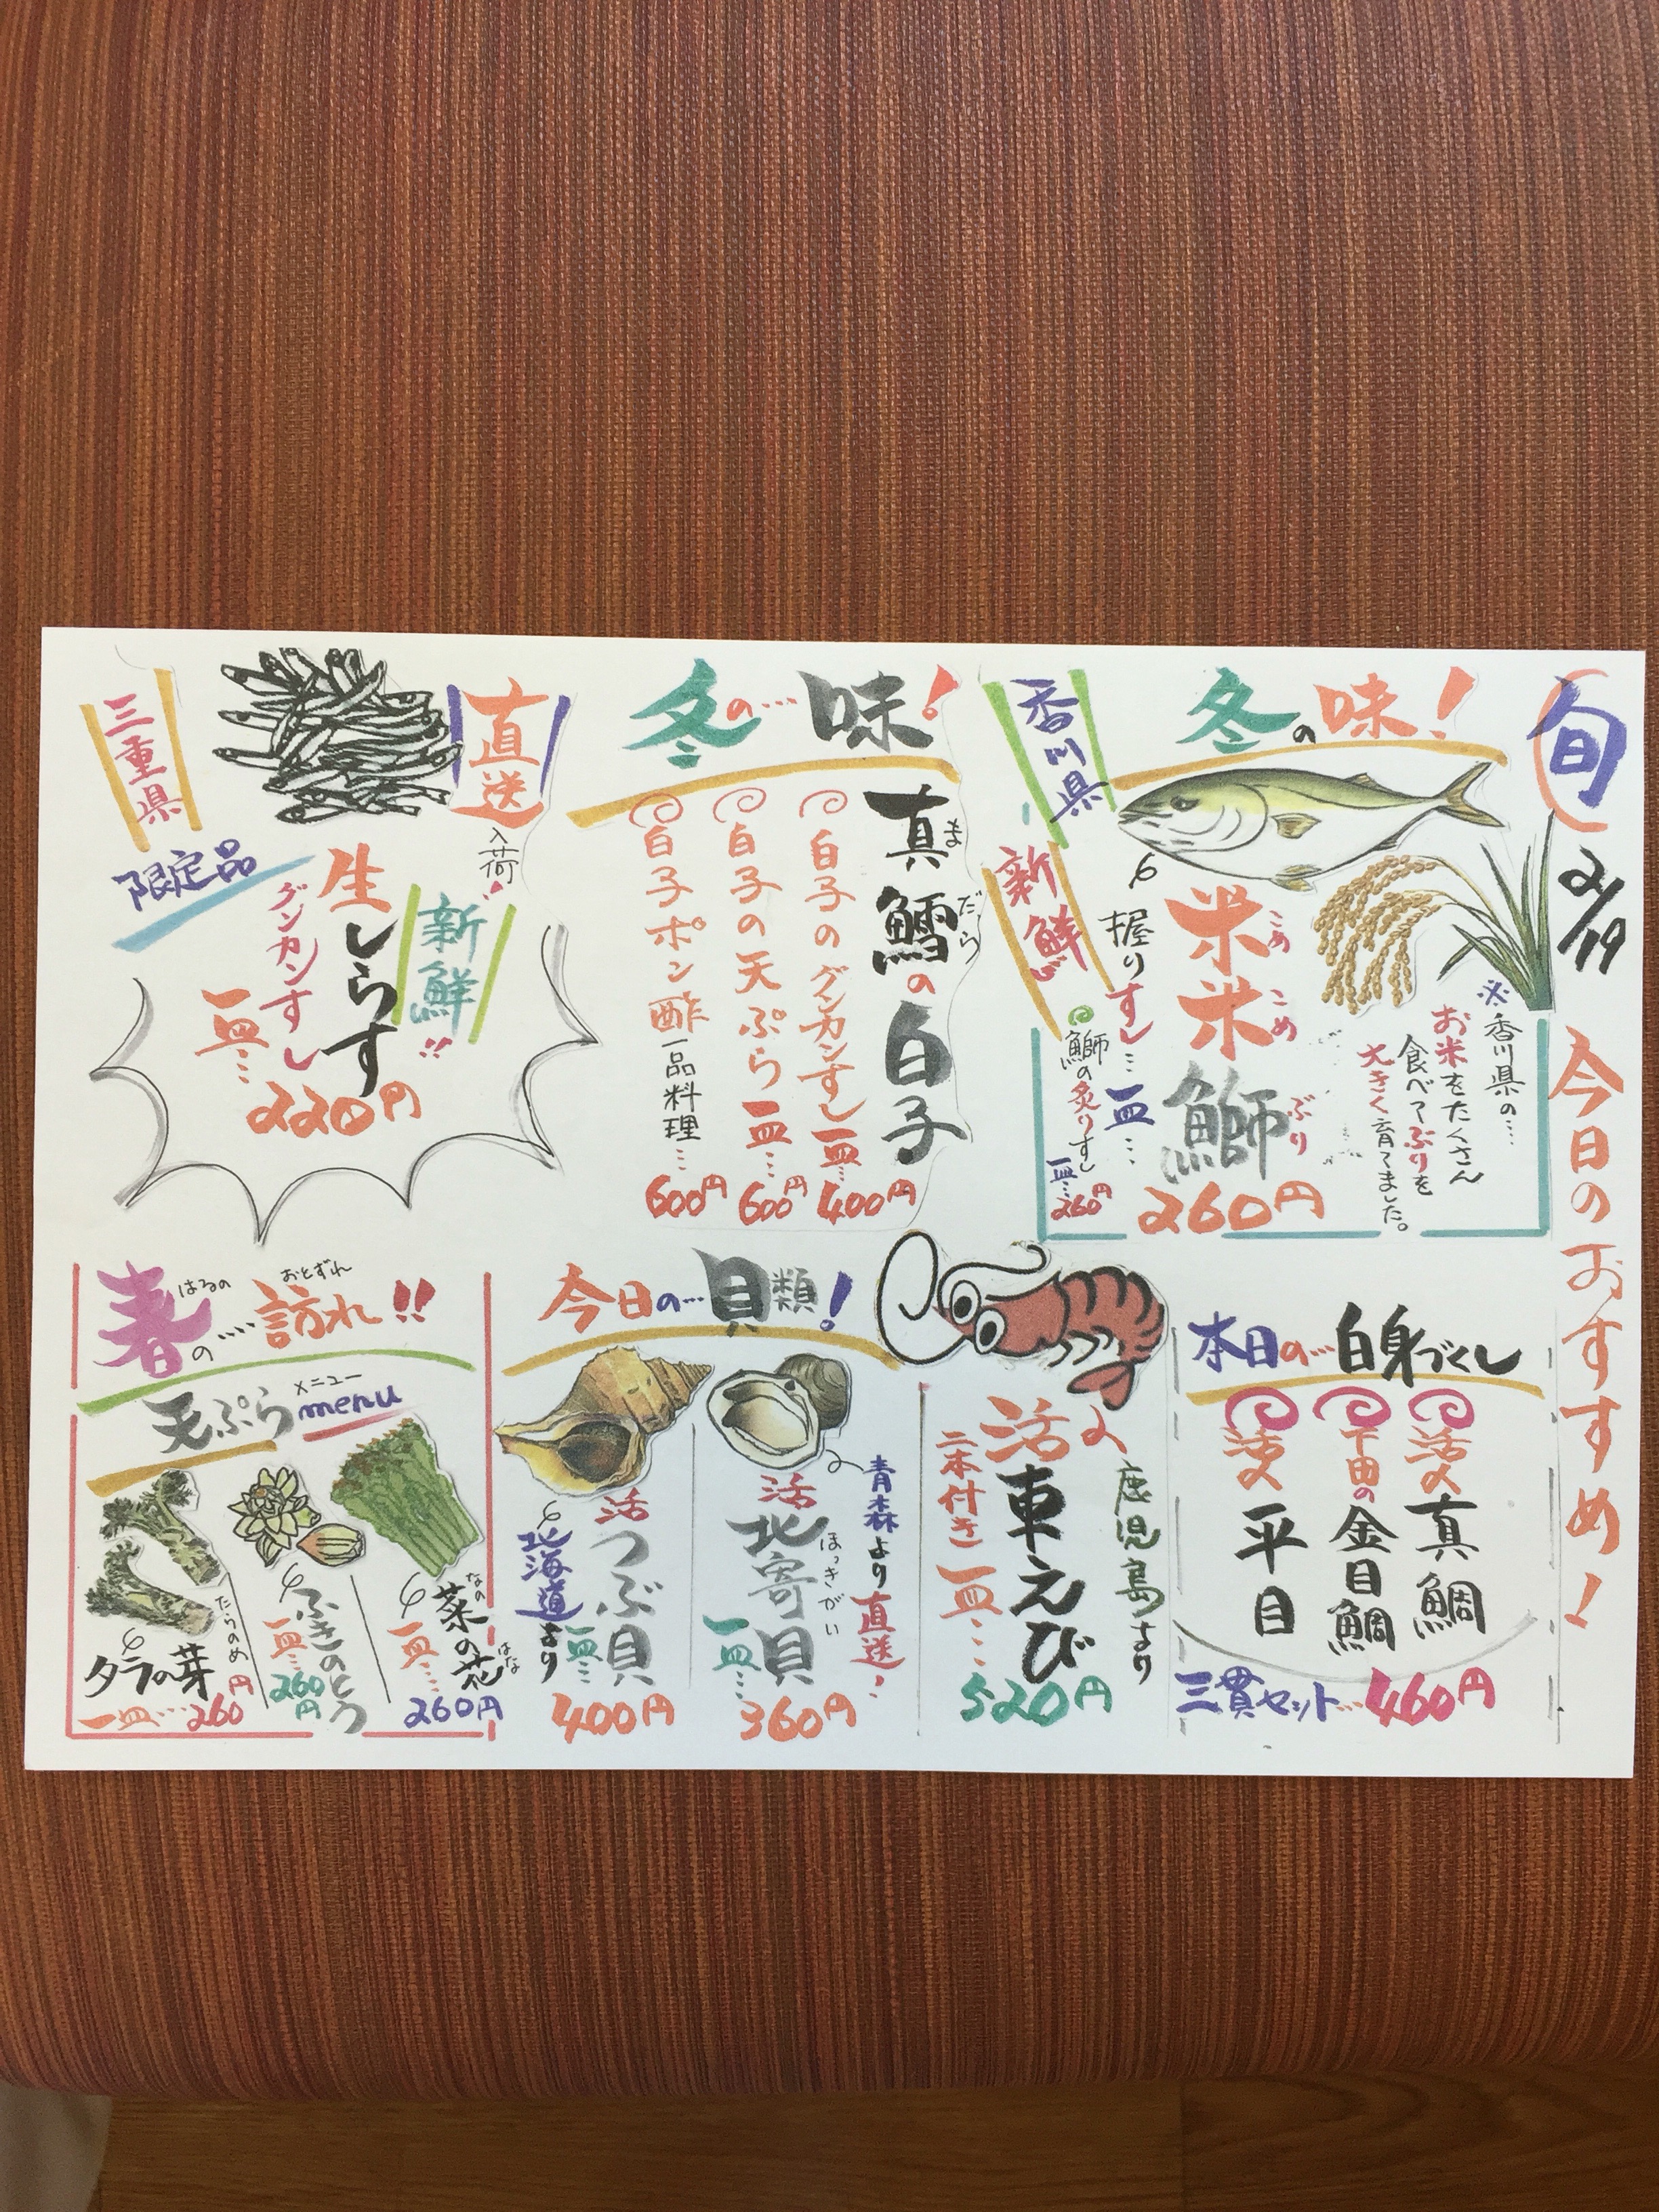 旬
2/19
今日のおすすめ！
冬の味！
香川県
新鮮
※香川県の…
お米をたくさん
食べてぶりを
大きく育てました。
米米鰤
こめこめぶり
握りすし…一皿…
260円
鰤の炙りすし
一皿…260円
冬の…味！
真鱈の白子
まだら
白子のグンカンすし一皿…400円
白子の天ぷら一皿…600円
白子ポン酢一品料理…600円
直送
入荷！
三重県
限定品
新鮮!!
生しらす
グンカンすし
一皿…
220円
本日の…白身づくし
活〆真鯛
下田の金目鯛
活〆平目
三貫セット…460円
鹿児島より
活車えび
二本付き一皿…
520円
今日の…貝類！
青森より直送！
活北寄貝
ほっきがい
一皿…
360円
活つぶ貝
北海道より
一皿…
400円
春の….訪れ!!
はるの
おとずれ
天ぷらmenu
メニュー
菜の花
なのはな
一皿…
260円
ふきのとう
一皿…
260円
タラの芽
たらのめ
一皿…260円